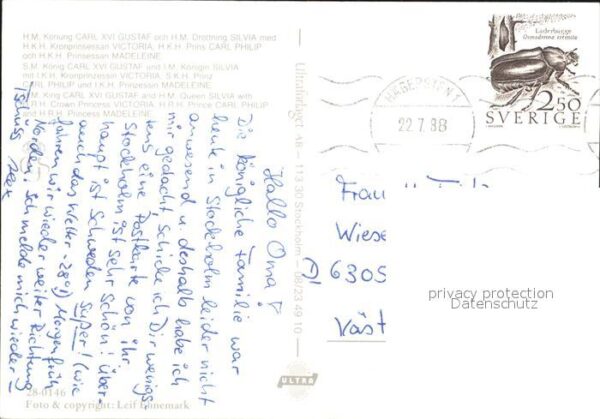 H.M. Konung CARL XVI GUSTAF och H.M. Drottning SILVIA med
H.K.H. Kronprinsessan VICTORIA, H.K.H. Prins CARL PHILIP
och H.K.H. Prinsessan MADELEINE.
S.M. König CARL XVI GUSTAF und I.M. Königin SILVIA
mit I.K.H. Kronprinzessin VICTORIA, S.K.H. Prinz
CARL PHILIP und I.K.H. Prinzessin MADELEINE.
H.M. King CARL XVI GUSTAF and H.M. Queen SILVIA with
H.R.H. Crown Princess VICTORIA, H.R.H. Prince CARL PHILIP
and H.R.H. Princess MADELEINE.
Hallo Oma!
Die königliche Familie war
heute in Stockholm leider nicht
anwesend u. deshalb habe ich
mir gedacht, schicke ich Dir wenigs-
tens eine Postkarte von ihr.
Stockholm ist sehr schön! Über-
haupt ist Schweden super! (wie
auch das Wetter - 28°) Morgen früh
fahren wir wieder weiter Richtung
Norden. Ich melde mich wieder!
Tschüss
28-0146
Foto & copyright: Leif Ennemark
Ultraförlaget AB - 113 30 Stockholm - 08/23 49 10
ULTRA
Läderbagge
Osmoderma eremita
2.50
SVERIGE
HÄGERSTEN 1
22.7.88
Frau
Wiese
D 6305
Väst
privacy protection
Datenschutz